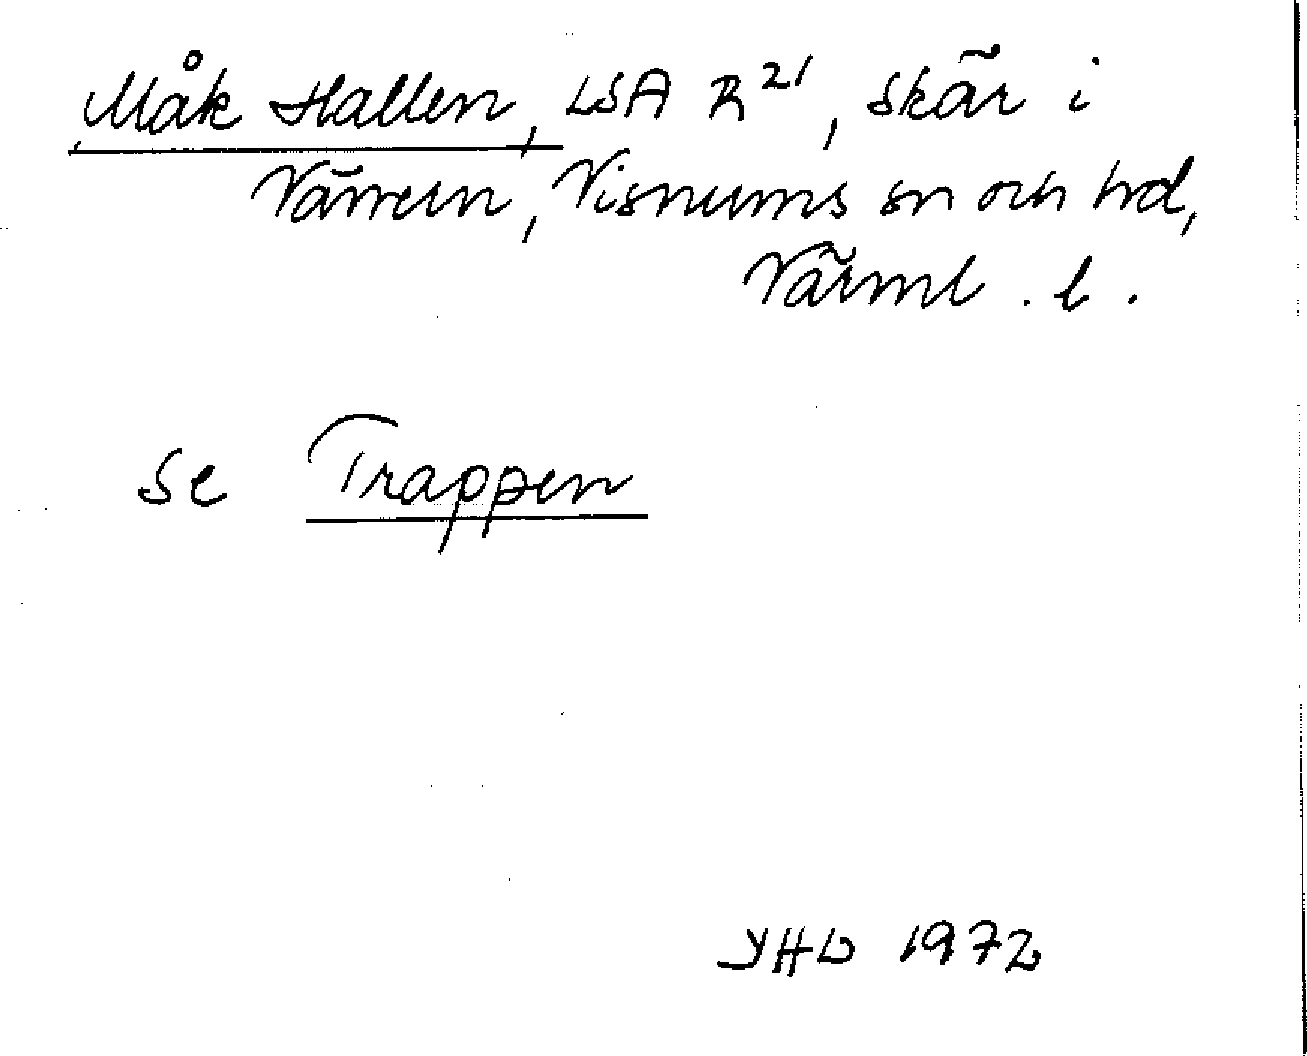 Måk Hallen, LSA R²¹, skär i
Vänern, Visnums sn och hd,
Värml. l.
se Trappen
YHL 1972